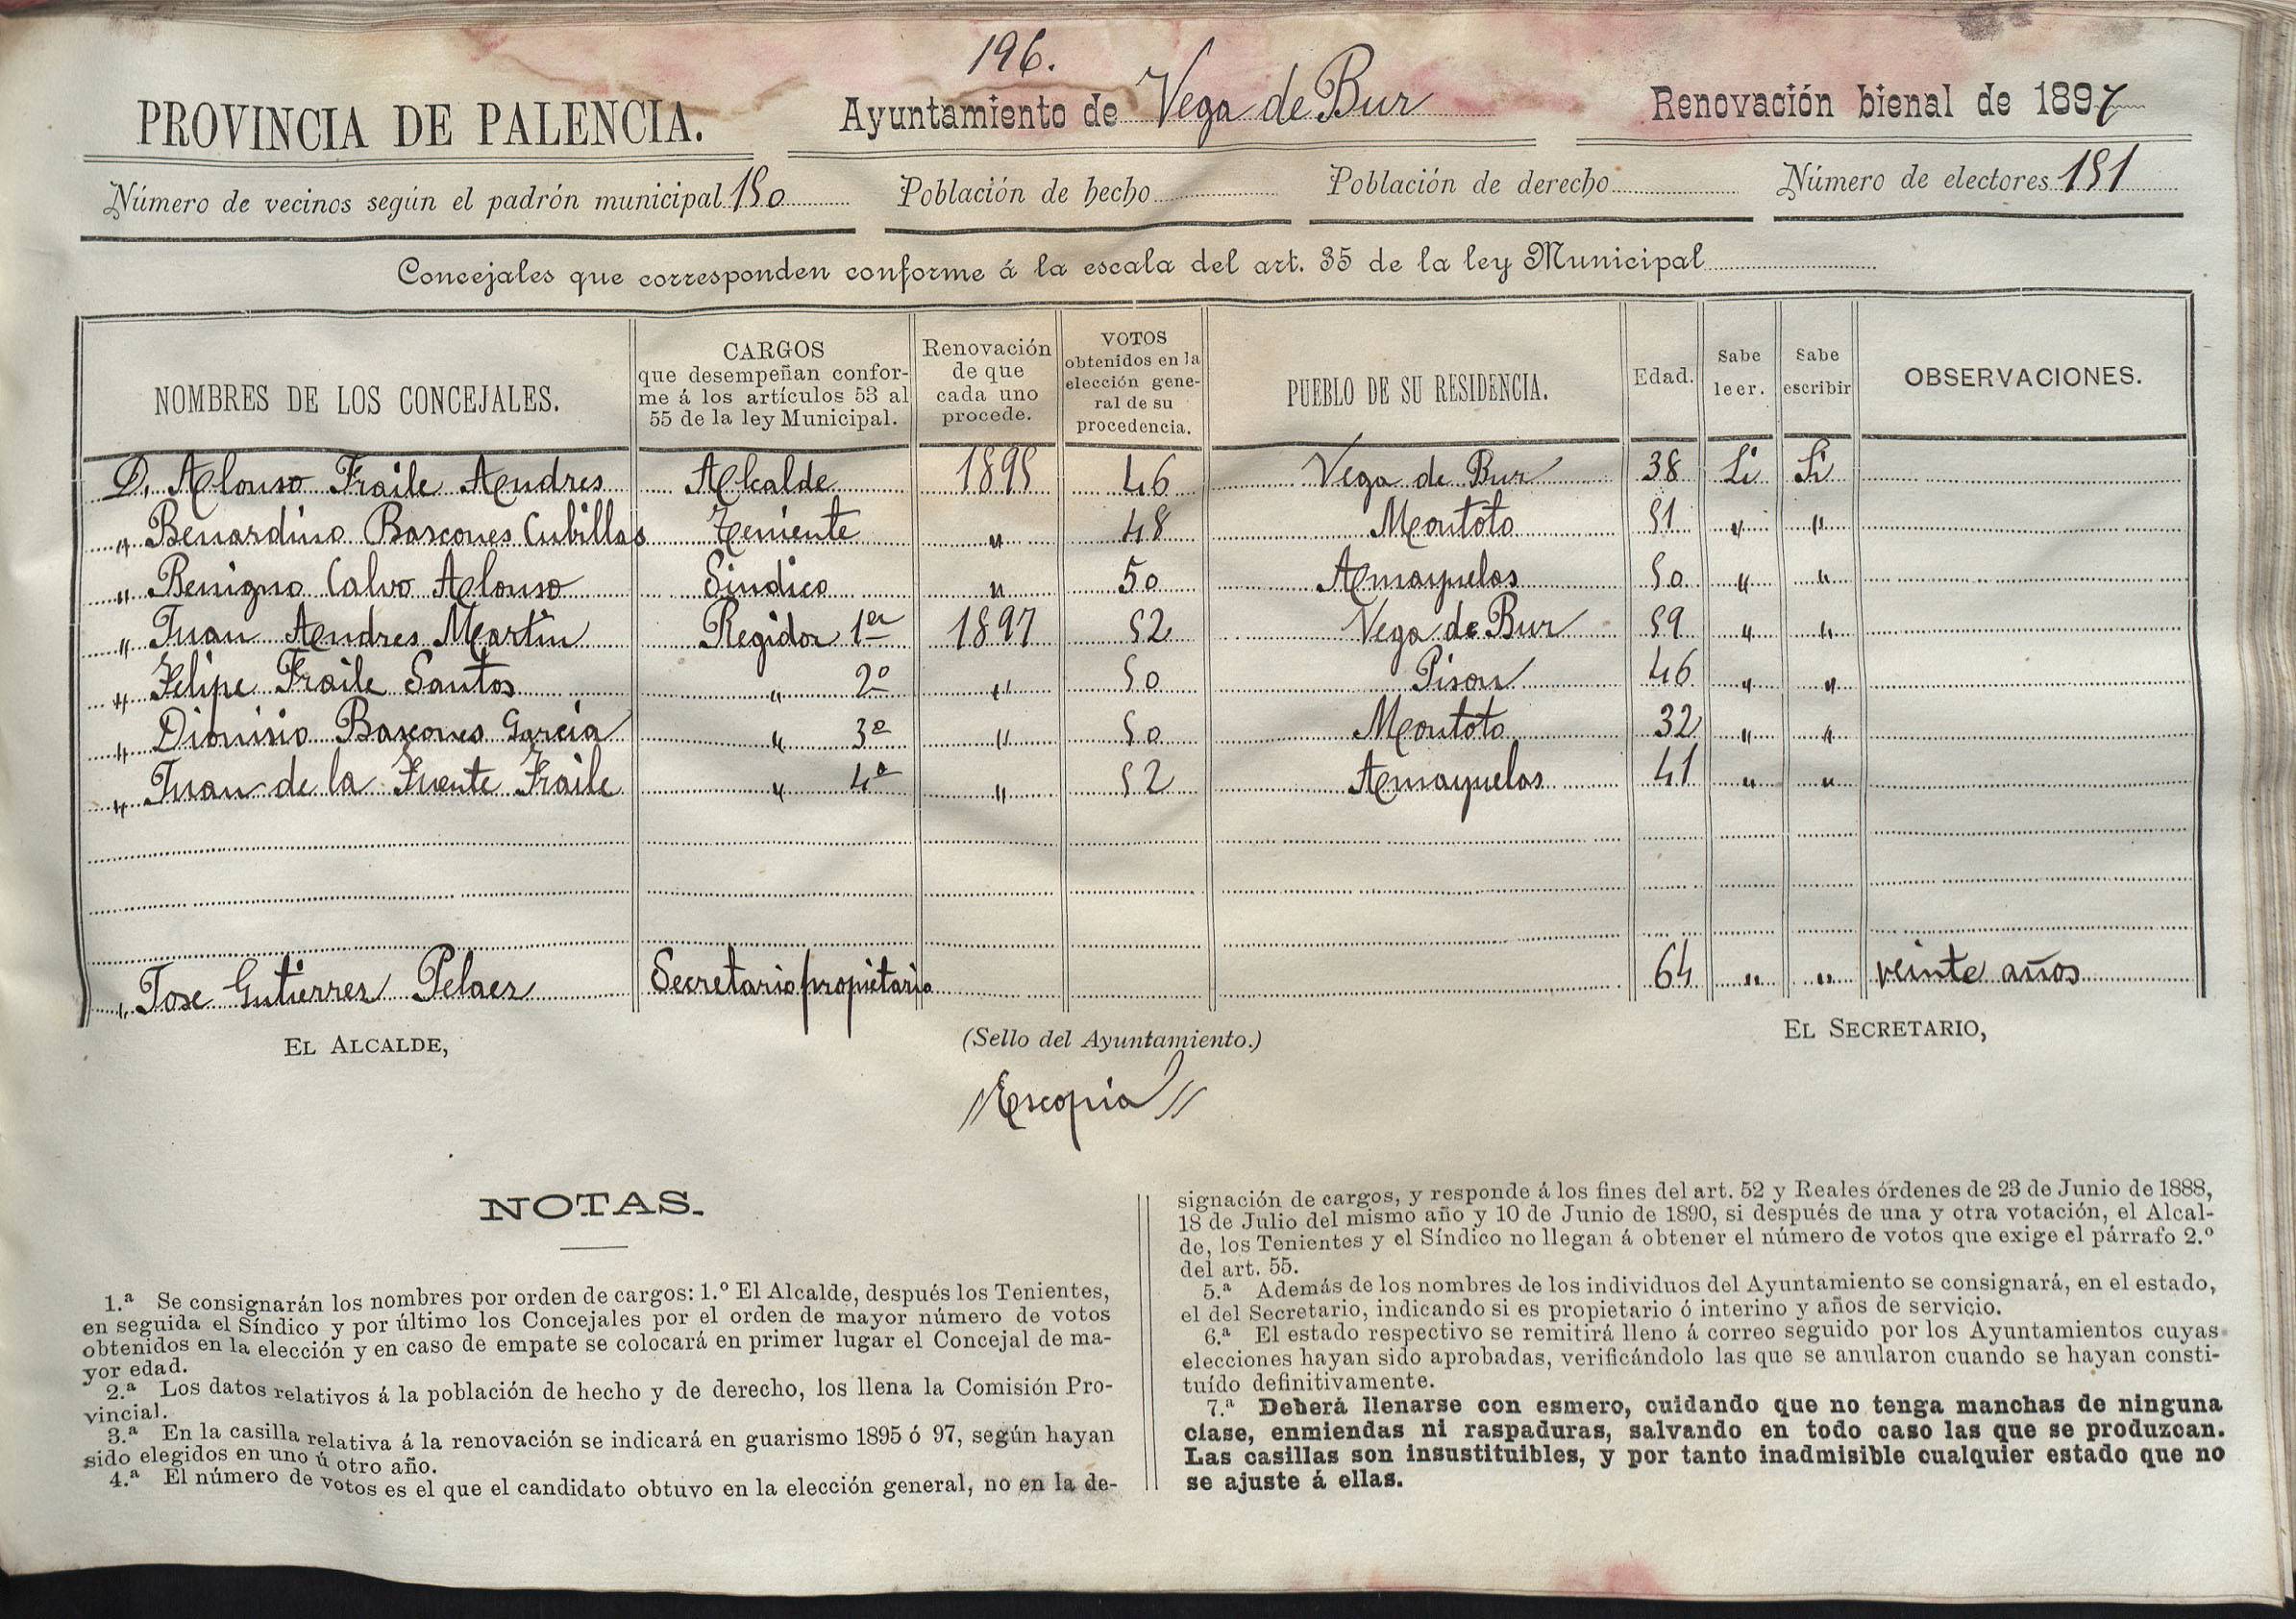 196.
PROVINCIA DE PALENCIA. Ayuntamiento de Vega de Bur Renovación bienal de 1897
Número de vecinos según el padrón municipal 150 Población de hecho Población de derecho Número de electores 151
Concejales que corresponden conforme á la escala del art. 35 de la ley Municipal
NOMBRES DE LOS CONCEJALES. CARGOS que desempeñan conforme á los artículos 53 al 55 de la ley Municipal. Renovación de que cada uno procede. VOTOS obtenidos en la elección general de su procedencia. PUEBLO DE SU RESIDENCIA. Edad. Sabe leer. Sabe escribir OBSERVACIONES.
D. Alonso Fraile Andres Alcalde 1895 46 Vega de Bur 38 Si Si
" Benardino Bascones Cubillas Teniente " 48 Montoto 51 " "
" Benigno Calvo Alonso Sindico " 50 Amayuelas 50 " "
" Juan Andres Martin Regidor 1er 1897 52 Vega de Bur 59 " "
" Felipe Fraile Santos " 2º " 50 Pison 46 " "
" Dionisio Bascones Garcia " 3º " 50 Montoto 32 " "
" Juan de la Fuente Fraile " 4º " 52 Amayuelas 41 " "
" Jose Gutierrez Pelaez Secretario propietario 64 " " veinte años
EL ALCALDE, (Sello del Ayuntamiento.) EL SECRETARIO,
//Es copia//
NOTAS.
1.ª Se consignarán los nombres por orden de cargos: 1.º El Alcalde, después los Tenientes,
en seguida el Síndico y por último los Concejales por el orden de mayor número de votos
obtenidos en la elección y en caso de empate se colocará en primer lugar el Concejal de ma-
yor edad.
2.ª Los datos relativos á la población de hecho y de derecho, los llena la Comisión Pro-
vincial.
3.ª En la casilla relativa á la renovación se indicará en guarismo 1895 ó 97, según hayan
sido elegidos en uno ú otro año.
4.ª El número de votos es el que el candidato obtuvo en la elección general, no en la de-
signación de cargos, y responde á los fines del art. 52 y Reales órdenes de 23 de Junio de 1888,
18 de Julio del mismo año y 10 de Junio de 1890, si después de una y otra votación, el Alcal-
de, los Tenientes y el Síndico no llegan á obtener el número de votos que exige el párrafo 2.º
del art. 55.
5.ª Además de los nombres de los individuos del Ayuntamiento se consignará, en el estado,
el del Secretario, indicando si es propietario ó interino y años de servicio.
6.ª El estado respectivo se remitirá lleno á correo seguido por los Ayuntamientos cuyas
elecciones hayan sido aprobadas, verificándolo las que se anularon cuando se hayan consti-
tuído definitivamente.
7.ª Deberá llenarse con esmero, cuidando que no tenga manchas de ninguna
clase, enmiendas ni raspaduras, salvando en todo caso las que se produzcan.
Las casillas son insustituibles, y por tanto inadmisible cualquier estado que no
se ajuste á ellas.